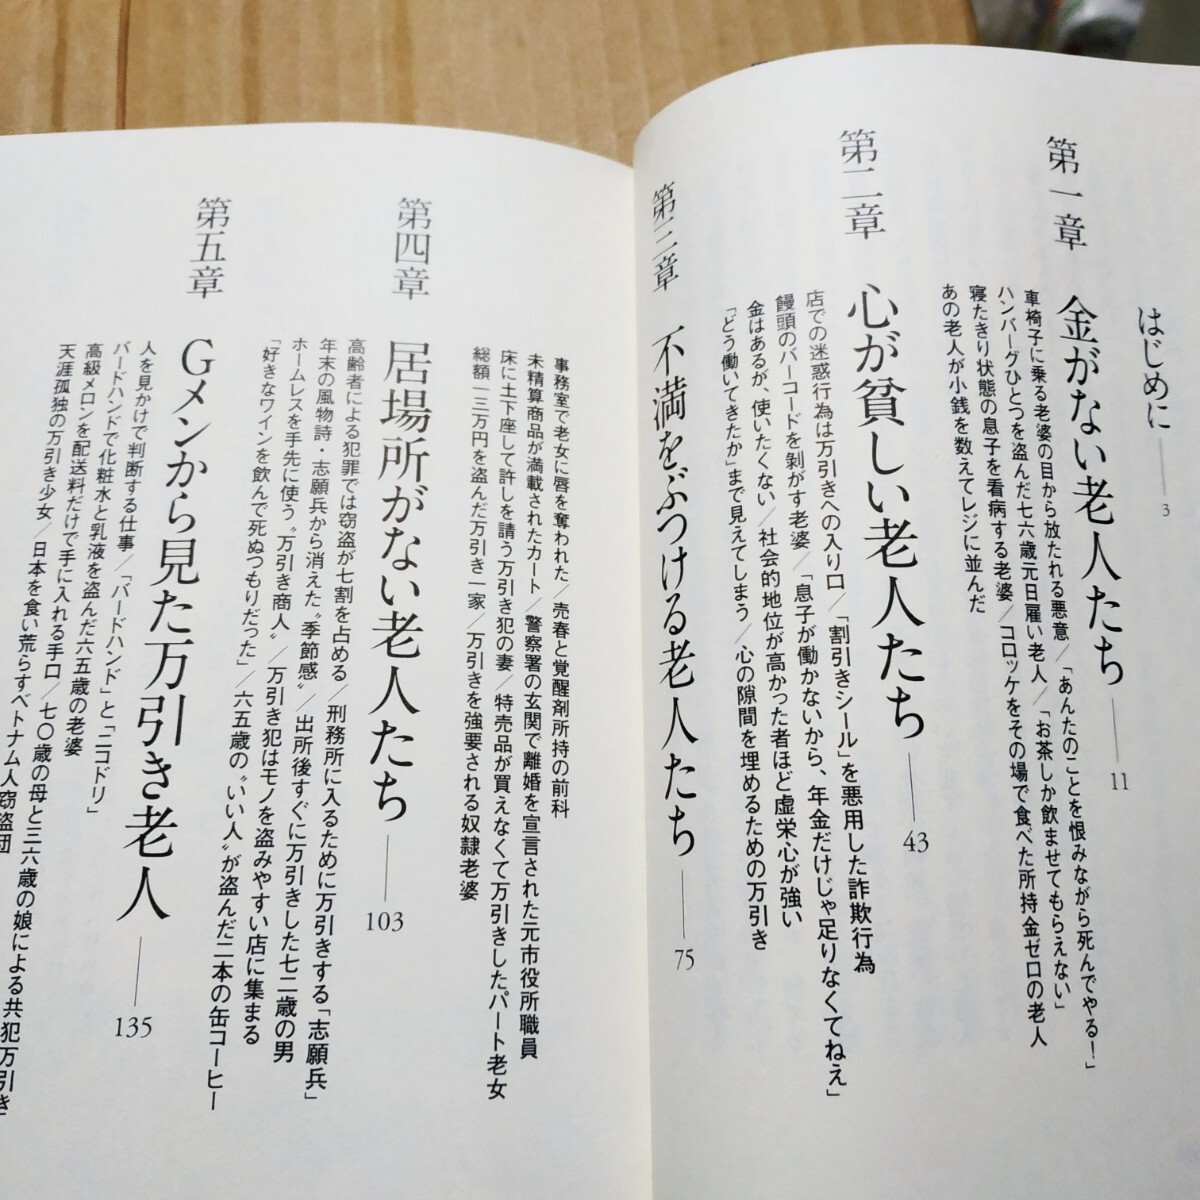 はじめに 3
第一章 金がない老人たち 11
車椅子に乗る老婆の目から放たれる悪意/「あんたのことを恨みながら死んでやる!」
ハンバーグひとつを盗んだ七六歳元日雇い老人/「お茶しか飲ませてもらえない」
寝たきり状態の息子を看病する老婆/コロッケをその場で食べた所持金ゼロの老人
あの老人が小銭を数えてレジに並んだ
第二章 心が貧しい老人たち 43
店での迷惑行為は万引きへの入り口/「割引きシール」を悪用した詐欺行為
饅頭のバーコードを剝がす老婆/「息子が働かないから、年金だけじゃ足りなくてねえ」
金はあるが、使いたくない/社会的地位が高かった者ほど虚栄心が強い
「どう働いてきたか」まで見えてしまう/心の隙間を埋めるための万引き
第三章 不満をぶつける老人たち 75
事務室で老女に唇を奪われた/売春と覚醒剤所持の前科
未精算商品が満載されたカート/警察署の玄関で離婚を宣言された元市役所職員
床に土下座して許しを請う万引き犯の妻/特売品が買えなくて万引きしたパート老女
総額一三万円を盗んだ万引き一家/万引きを強要される奴隷老婆
第四章 居場所がない老人たち 103
高齢者による犯罪では窃盗が七割を占める/刑務所に入るために万引きする「志願兵」
年末の風物詩・志願兵から消えた〝季節感〟/出所後すぐに万引きした七二歳の男
ホームレスを手先に使う〝万引き商人〟/万引き犯はモノを盗みやすい店に集まる
「好きなワインを飲んで死ぬつもりだった」/六五歳の〝いい人〟が盗んだ二本の缶コーヒー
第五章 Gメンから見た万引き老人 135
人を見かけで判断する仕事/「バードハンド」と「ニコドリ」
バードハンドで化粧水と乳液を盗んだ六五歳の老婆
高級メロンを配送料だけで手に入れる手口/七〇歳の母と三六歳の娘による共犯万引き
天涯孤独の万引き少女/日本を食い荒らすベトナム人窃盗団